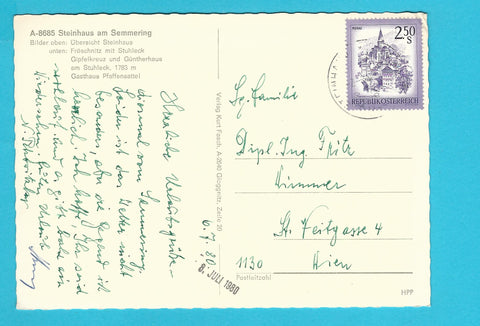 A-8685 Steinhaus am Semmering
Bilder oben: Übersicht Steinhaus
unten: Fröschnitz mit Stuhleck
Gipfelkreuz und Güntherhaus
am Stuhleck, 1783 m
Gasthaus Pfaffensattel
6.7.80
Herzliche Urlaubsgrüße
diesmal vom Semmering.
Leider ist das Wetter nicht
besonders, aber die Gegend ist
herrlich. Ich hoffe, Ihr seid
wohlauf und es geht
Verlag Kurt Fasch, A-2640 Gloggnitz, Zeile 20
2.50
S
REPUBLIK ÖSTERREICH
Sg. Familie
Dipl. Ing. Fritz
Wimmer
St. Veitgasse 4
1130 Wien
Postleitzahl
8. JULI 1980
HPP